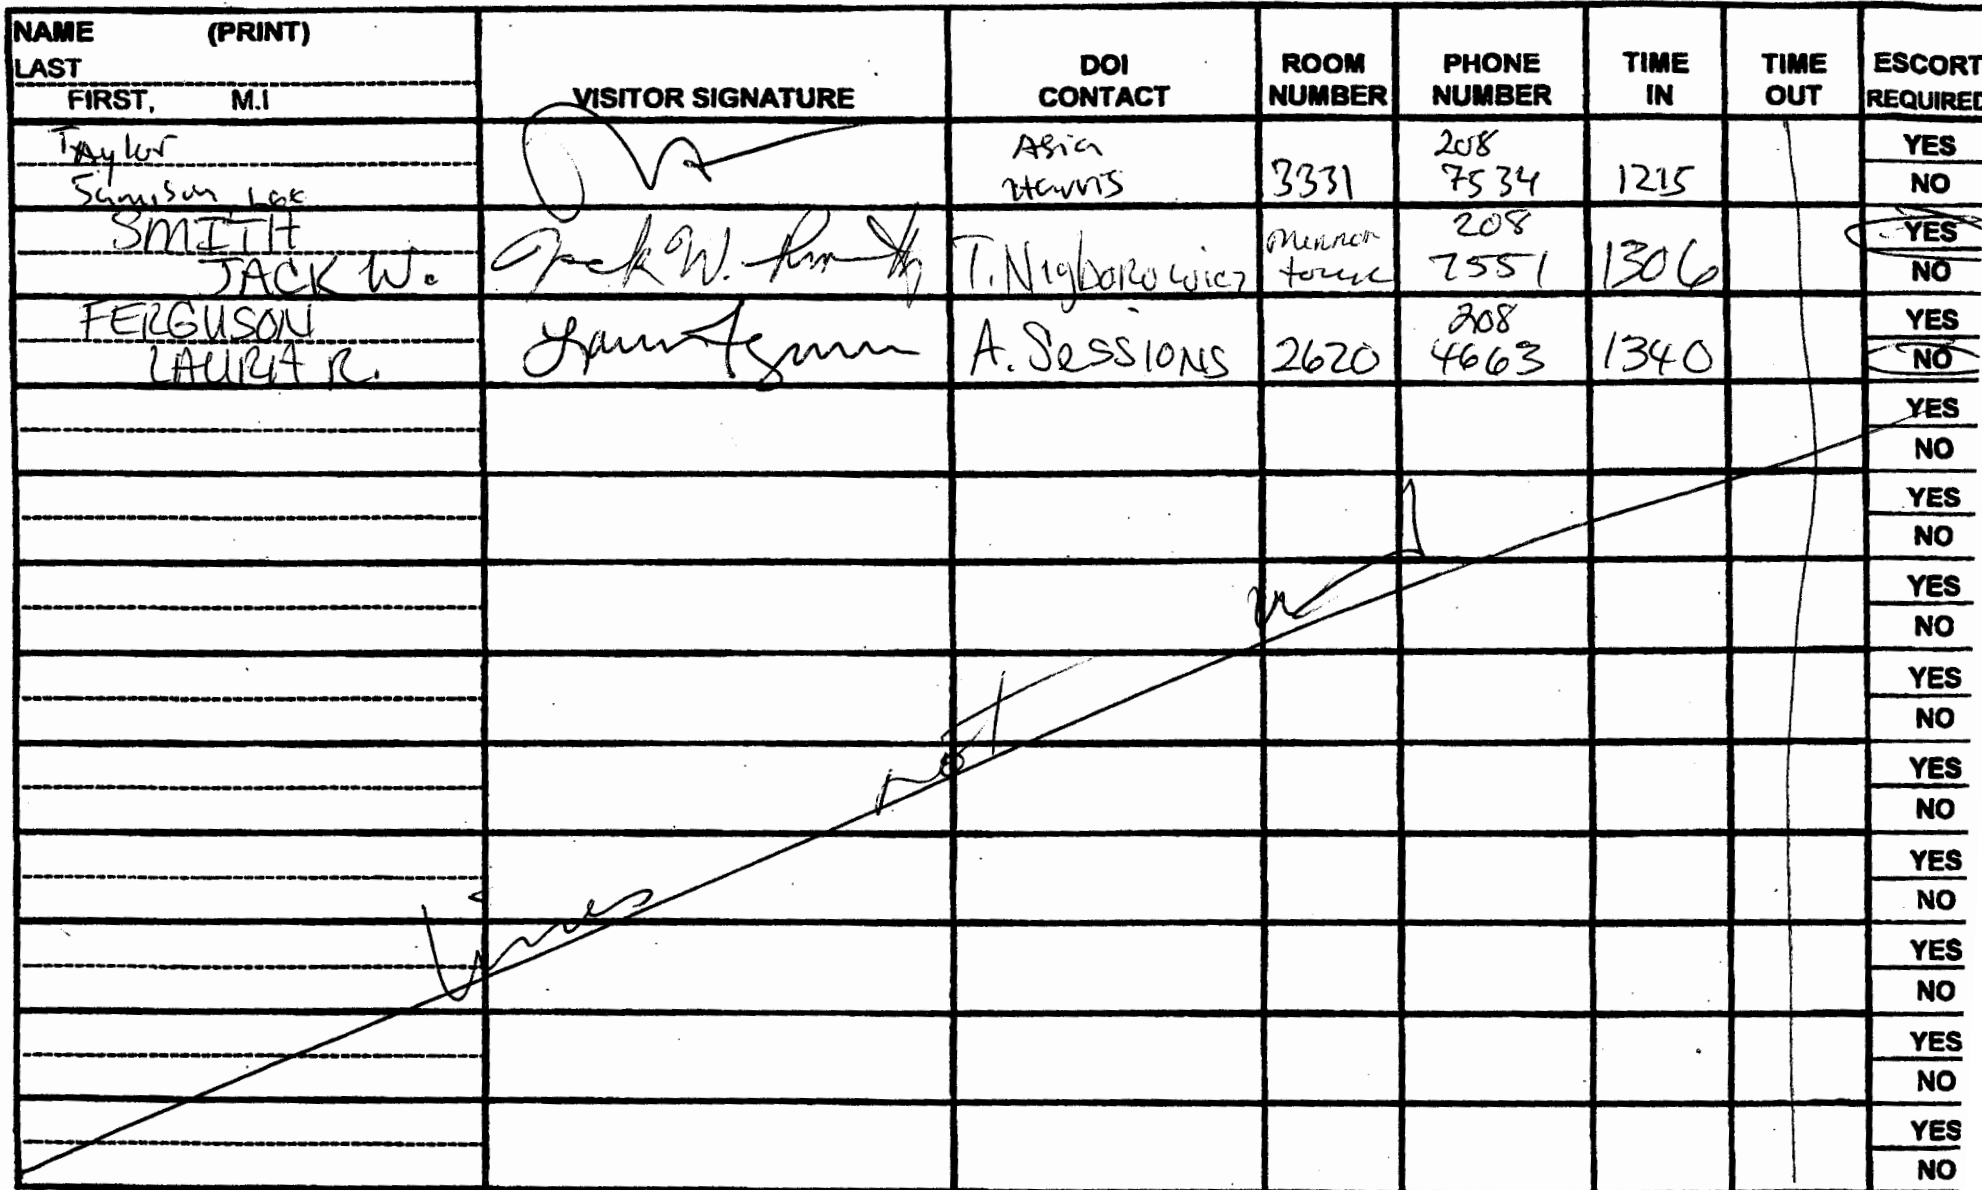 NAME (PRINT)
LAST
FIRST, M.I
VISITOR SIGNATURE
DOI CONTACT
ROOM NUMBER
PHONE NUMBER
TIME IN
TIME OUT
ESCORT REQUIRED
Taylor
Asia
Harris
3331
208
7534
1215
YES
NO
SMITH
JACK W.
Jack W. Smith
T. Nigborowicz
208
7551
1306
YES
NO
FERGUSON
LAURA R.
A. SESSIONS
2620
208
4663
1340
YES
NO
YES
NO
YES
NO
YES
NO
YES
NO
YES
NO
YES
NO
YES
NO
YES
NO
YES
NO
Lines
not